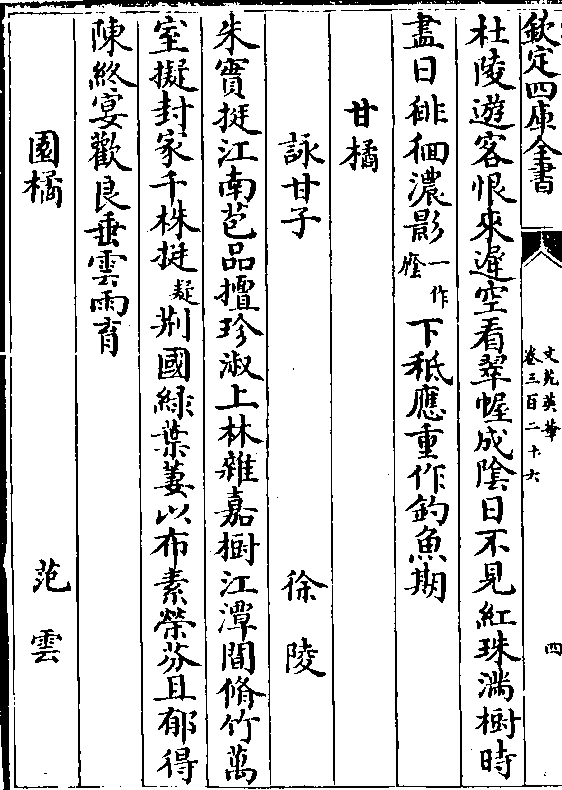 欽定四庫全書
文苑英華
卷三百二十六
四
杜陵遊客恨來遲空看翠幄成陰日不見紅珠滿樹時
盡日徘徊濃影一作陰下秪應重作釣魚期
甘橘
詠甘子 徐陵
朱實挺江南苞品擅珍淑上林雜嘉樹江潭間脩竹萬
室擬封家千株挺疑荆國緑葉萋以布素榮芬且郁得
陳終宴歡良垂雲雨育
園橘 范雲